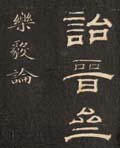 詒晉亝
樂毅論